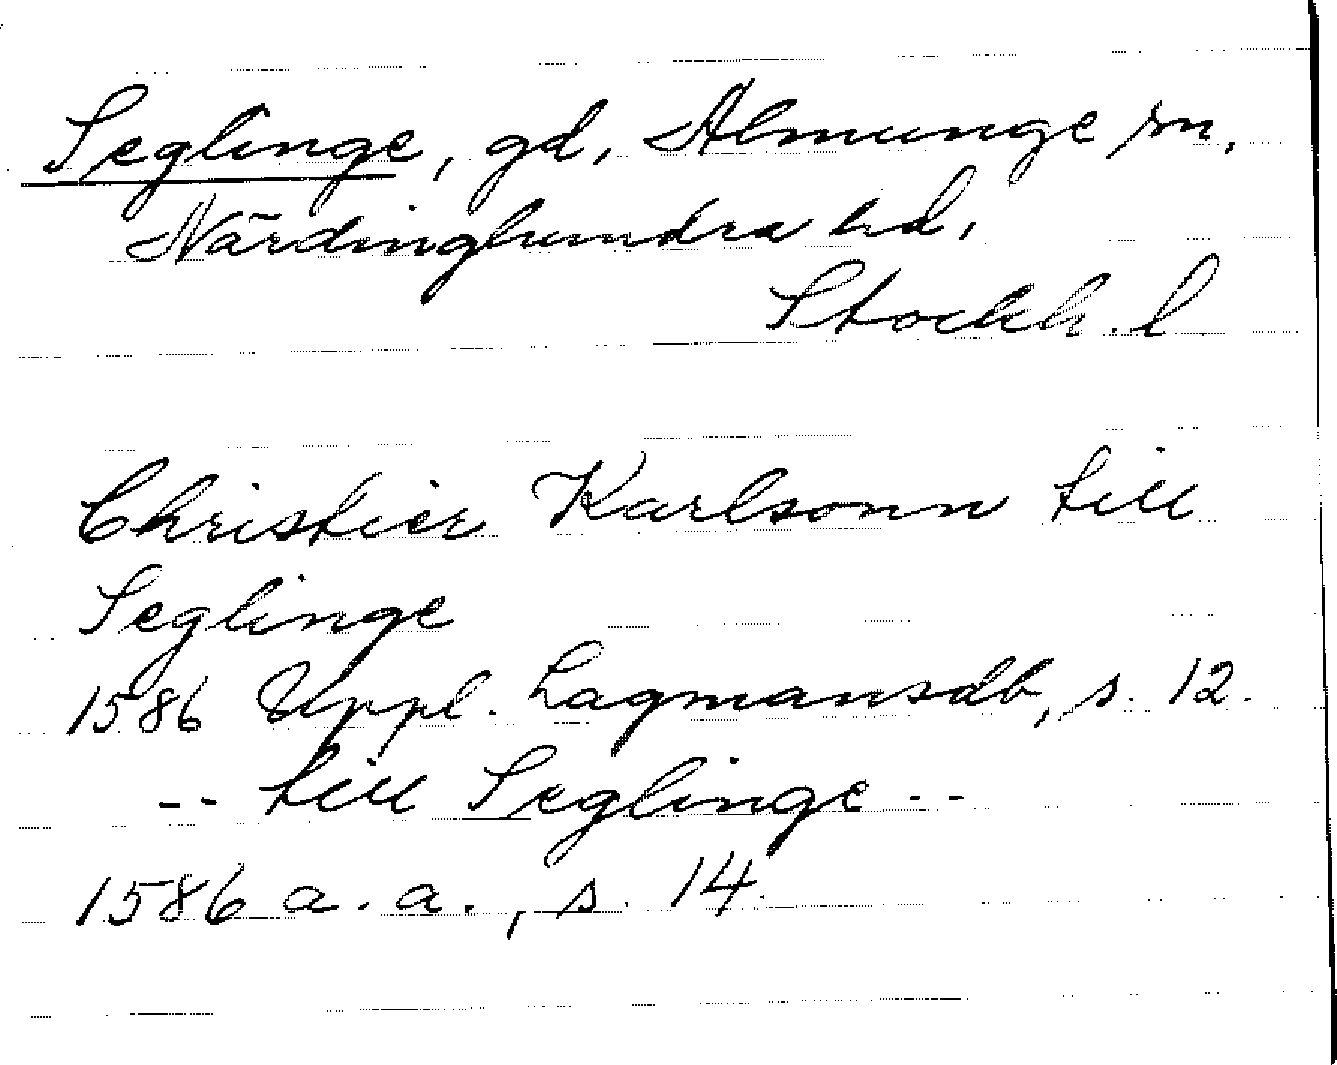 Seglinge, gd, Almunge sn,
Närdinghundra hd,
Stockh. l
Christier Karlsonn till
Seglinge
1586 Uppl. Lagmansdb, s. 12.
-- till Seglinge --
1586 a. a., s. 14.